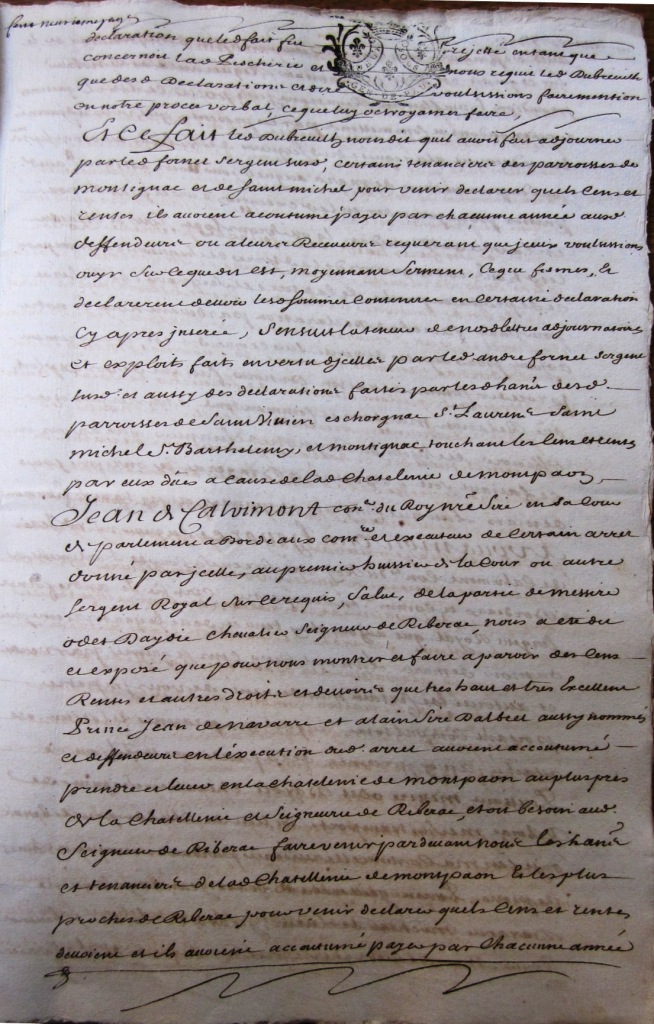 declaration que led fait fut rejetté en tant que
concernoit lad Pescherie et nous requit led Dubreuilh
que desd Declarations et dire voulussions faire mention
en notre procez verbal, ce que luy octroyames faire,
Et ce fait led Dubreuilh nous dit quil avoit fait adjourner
par led fornel sergent susd, certains tenanciers des parroisses de
montignac et de saint michel pour venir declarer quels cens et
rentes ils avoient acoustumé payer par chacunne année ausd
deffendeurs ou a leurs Receveurs requerant que jceux voulussions
ouyr sur ce que dit est, moyennant serment, ce que fismes, Et
declarerent devoir les sommes contenues en certaine declaration
cy apres jnserée, sensuit la teneur de nosd lettres adjournatoires
et exploits faits en vertu djcelles par led andre fornel sergent
susd et aussy des declarations faites par lesd hans desd
parroisses de saint Vivien eschorgnac St Laurens saint
michel St Barthelemy, et montignac touchant les cens et rentes
par eux dües a cause de lad Chatelenie de montpaon,
Jean de Calvimont coner du Roy nre sire en sa cour
de parlement a Bordeaux comre et executeur de certain arret
donné par jcelle, au premier huissier de la cour ou autre
sergent Royal sur ce requis, salut, de la partie de messire
odet Daydie chevalier seigneur de Riberac, nous a eté dit
et exposé que pour nous montrer et faire aparoir des cens
Rentes et autres droits et devoirs que tres haut et tres Excellent
Prince Jean de navarre et alain sire Dalbret aussy nommés
et deffendeurs en l'éxecution dud arret avoient accoutumé
prendre et lever en la chatelenie de montpaon au plus pres
de la Chatellenie et seigneurie de Riberac, etoit besoin aud
seigneur de Riberac faire venir pardevant nous les hans
et tenanciers de lad Chatellenie de montpaon Et les plus
proches de Riberac pour venir declarer quels Cens et rentes
devoient et ils avoient accoutumé payer par Chacunne année